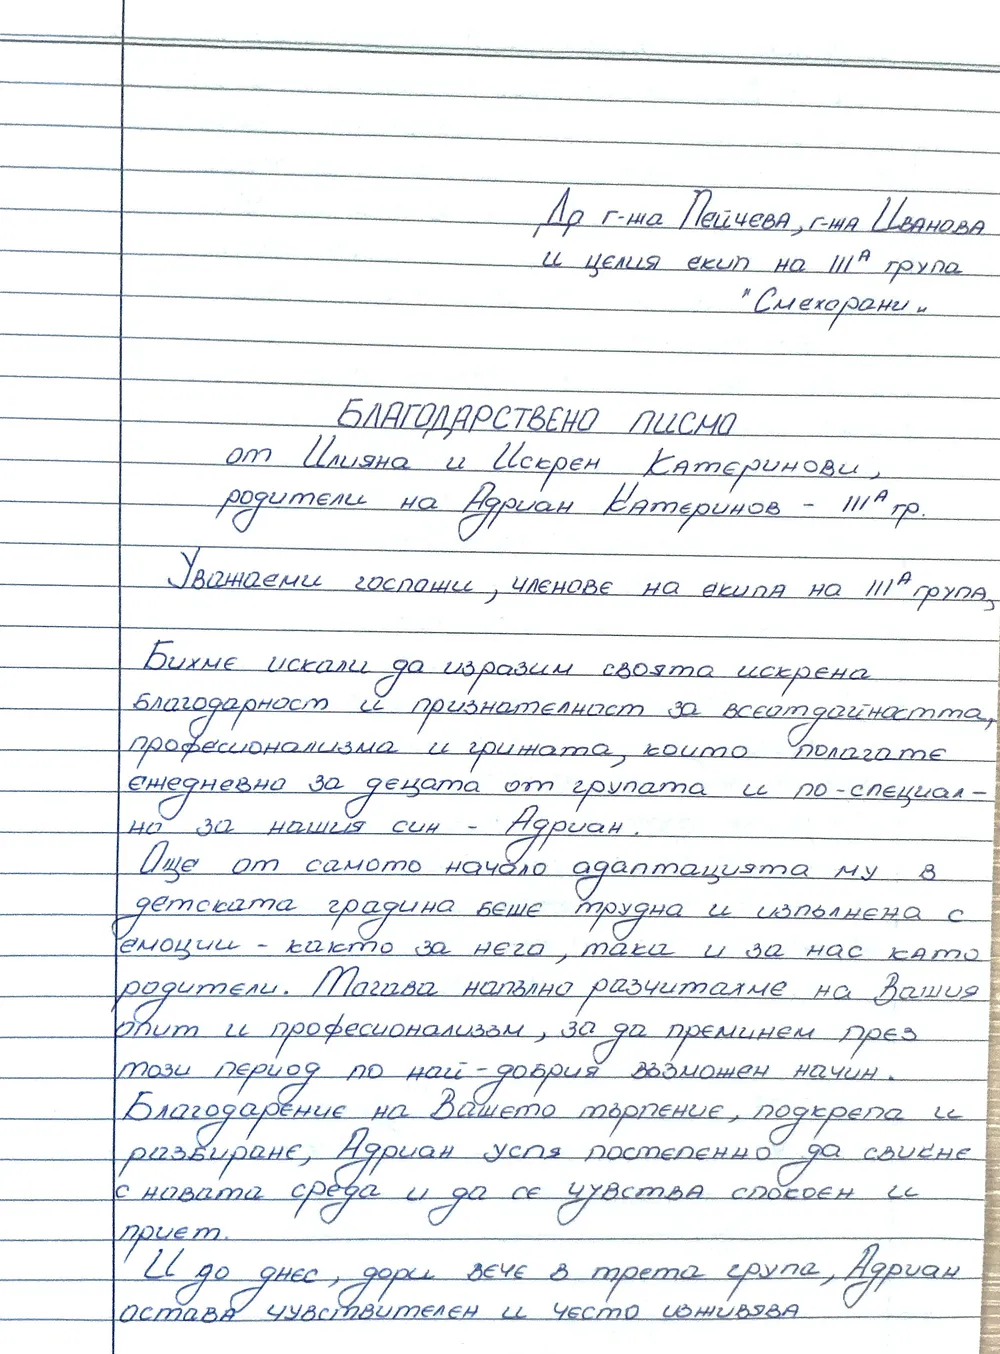 До г-жа Пейчева, г-жа Иванова
и целия екип на IIIА група
"Смехорани"
БЛАГОДАРСТВЕНО ПИСМО
от Илияна и Искрен Катеринови,
родители на Адриан Катеринов - IIIА гр.
Уважаеми госпожи, членове на екипа на IIIА група,
Бихме искали да изразим своята искрена
благодарност и признателност за всеотдайността,
професионализма и грижата, които полагате
ежедневно за децата от групата и по-специал-
но за нашия син - Адриан.
Още от самото начало адаптацията му в
детската градина беше трудна и изпълнена с
емоции - както за него, така и за нас като
родители. Тогава напълно разчитахме на Вашия
опит и професионализъм, за да преминем през
този период по най-добрия възможен начин.
Благодарение на Вашето търпение, подкрепа и
разбиране, Адриан успя постепенно да свикне
с новата среда и да се чувства спокоен и
приет.
И до днес, дори вече в трета група, Адриан
остава чувствителен и често изживява